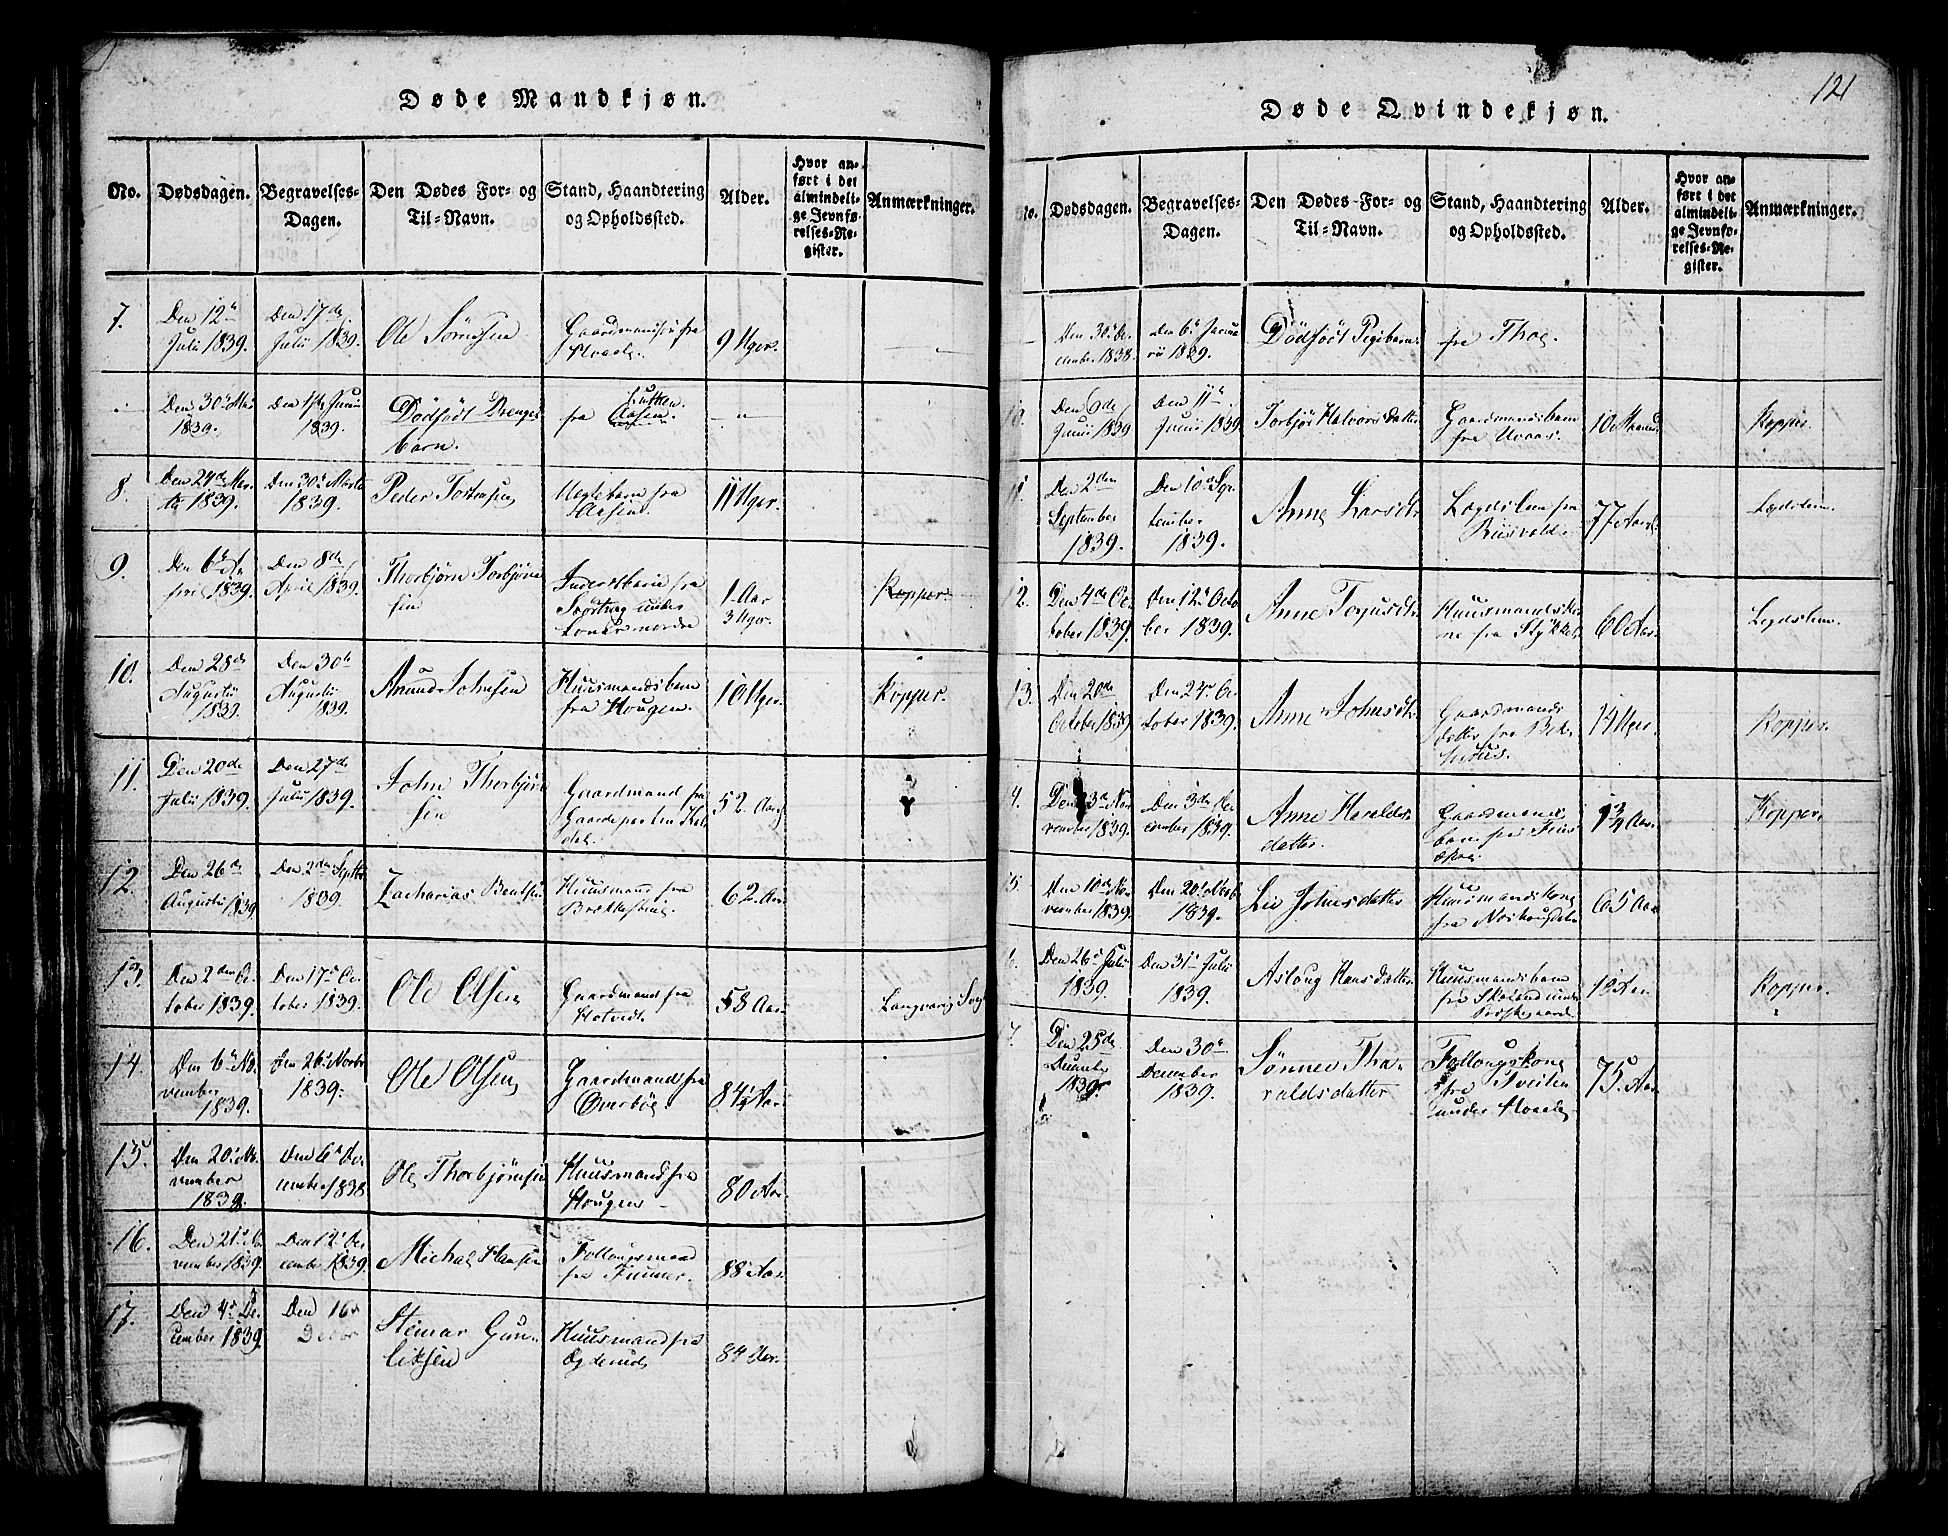 Døde Mandkjøn.
No. Dødsdagen. Begravelses-Dagen. Den Dødes For- og Til-Navn. Stand, Haandtering og Opholdssted. Alder. Hvor anført i det almindelige Jevnførelses-Register. Anmærkninger.
7. Den 12te Juli 1839. Den 17de Julii 1839. Ole Gaardmandssøn fra 9 Uger.
Den 30te 1839. Den 1ste Junii 1839. Dödfødt Drenge barn. fra Lutken Aasen.
8. Den 24de 1839. Den 30te Martii 1839. Peder fra Aasen. 11 Uger.
9. Den 6te April 1839. Den 8de April 1839. Thorbjørn Torbjørn sen fra under 1 Aar 3 Uger. Kopper.
10. Den 28de Augustii 1839. Den 30te Augustii 1839. Anund Johnsen Huusmandsbarn fra Hougen. 10 Uger. Kopper.
11. Den 20de Julii 1839. Den 27de Julii 1839. John Thorbjørn sen Gaardmand fra 52. Aar
12. Den 26de Augustii 1839 Den 2den Septbr 1839. Zacharias Bentsen Huusmand fra 62. Aar
13. Den 2den October 1839. Den 17de October 1839. Ole Olsen Gaardmand fra Hotvedt. 58 Aar Langvarig
14. Den 6te November 1839. Den 26de Novbr 1839. Ole Olsen Gaardmand fra Overbøe. 84½ Aar.
15. Den 20de November 1839 Den 6te December 1838 Ole Thorbjørnsen Huusmand fra Hougen 80 Aar.
16. Den 21de November 1839. Den 12te December 1839. Michal Hansen Follougsmand fra 88 Aar.
17. Den 4de December 1839. Den 16de Decbr Steinar Gunliksen Huusmand fra 84 Aar.
121
Døde Qvindekjøn.
No. Dødsdagen. Begravelses-Dagen. Den Dødes For- og Til-Navn. Stand, Haandtering og Opholdssted. Alder. Hvor anført i det almindelige Jevnførelses-Register. Anmærkninger.
Den 30te December 1838. Den 6te Januarii 1839. Dödfödt Pigebarn fra Thoe.
10. Den 6de Junii 1839 Den 11te Junii 1839 Torbjør Halvorsdatter Gaardmandsbarn fra 10 Maaned. Kopper.
11. Den 2den September 1839. Den 10de September 1839. Anne Larsdtr Lægdslem fra Riisvold. 77 Aar. Lægdslem.
12. Den 4de October 1839. Den 12te October 1839. Anne Huusmandskone fra 60 Aar. Legdslem.
13. Den 20de October 1839 Den 27de October 1839. Anne Johnsdtr Gaardmands datter fra 14 Uger. Kopper.
4. Den 23de November 1839 Den 3de December 1839. Anne Haralds datter. Gaardmands barn fra Aar. Kopper.
5. Den 10de November 1839 Den 20de 1839. Liv Johnsdatter Huusmandskone fra 65 Aar
6. Den 26de Julii 1839. Den 31te Julii 1839. Aslaug Hansdatter Huusmandsbarn fra under 1 Aar. Kopper.
7. Den 25de December 1839 Den 30te December 1839. Sönnev Tharaldsdatter Follougskone fra Tveiten under 75. Aar